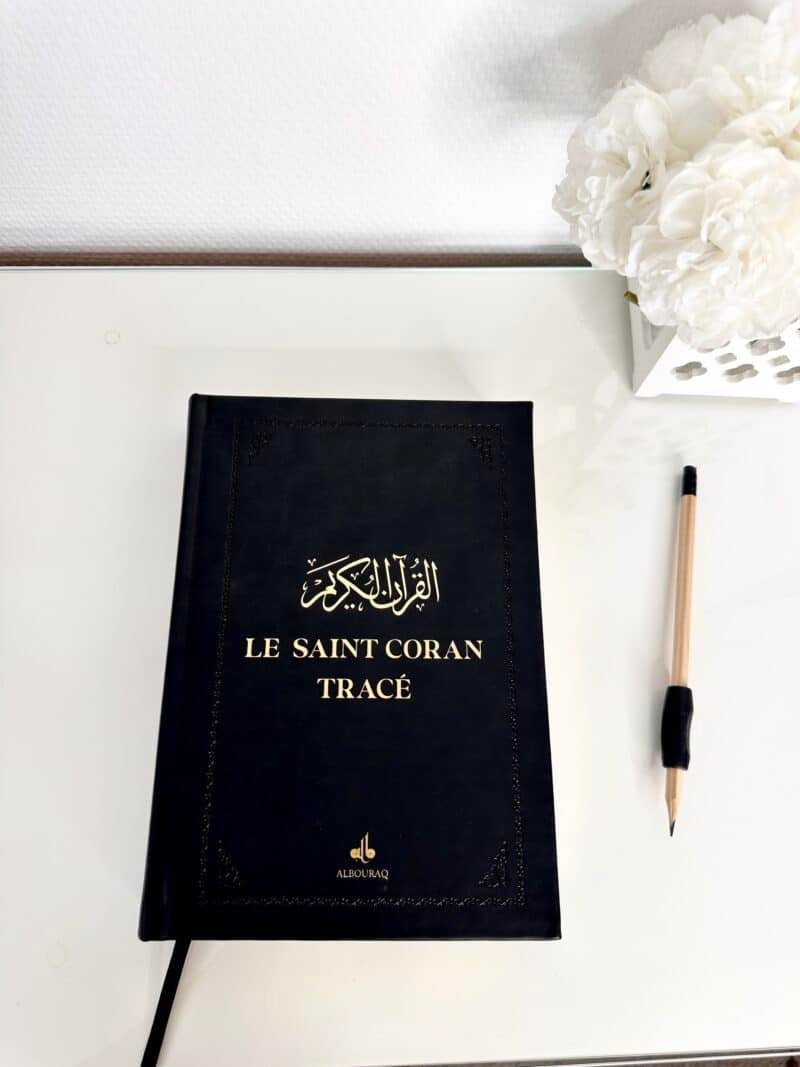 القرآن الكريم
LE SAINT CORAN
TRACÉ
ALBOURAQ